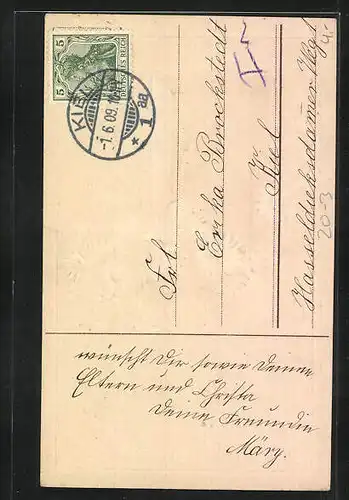 5 DEUTSCHES REICH 5
KIEL
-1.6.09.
* 1 aa
Frl.
Erika Brockstedt
Kiel
Hasseldieksdamer Weg
20-3
wünscht Dir sowie Deinen
Eltern und Christa
Deine Freundin
Märy.